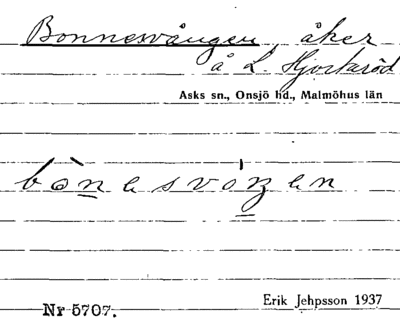 Bonnesvången, åker
å L. Hjortaröd
Asks sn., Onsjö hd., Malmöhus län
Nr 5707.
Erik Jehpsson 1937